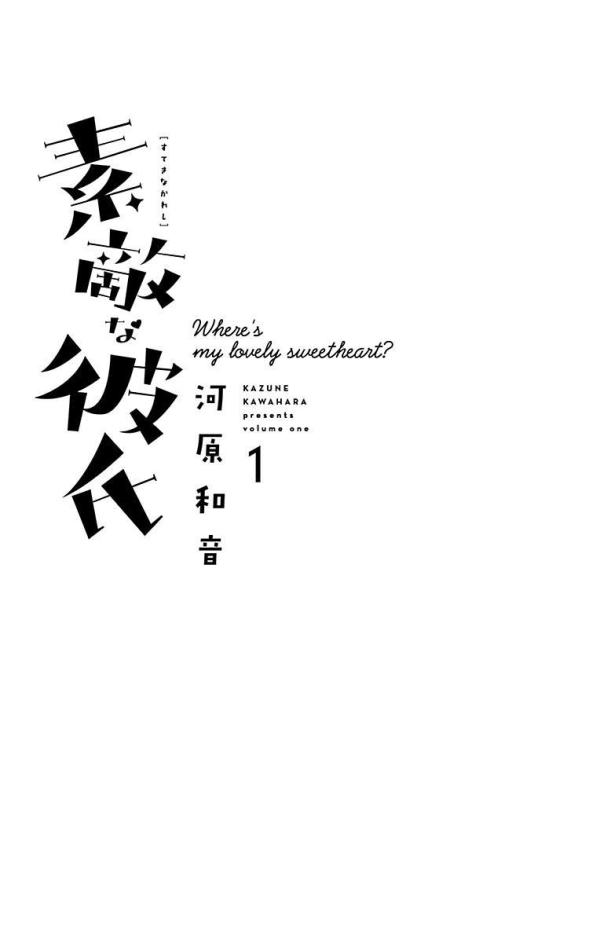 素敵な彼氏
[すてきなかれし]
Where's
my lovely sweetheart?
河原和音
KAZUNE
KAWAHARA
presents
volume one
1